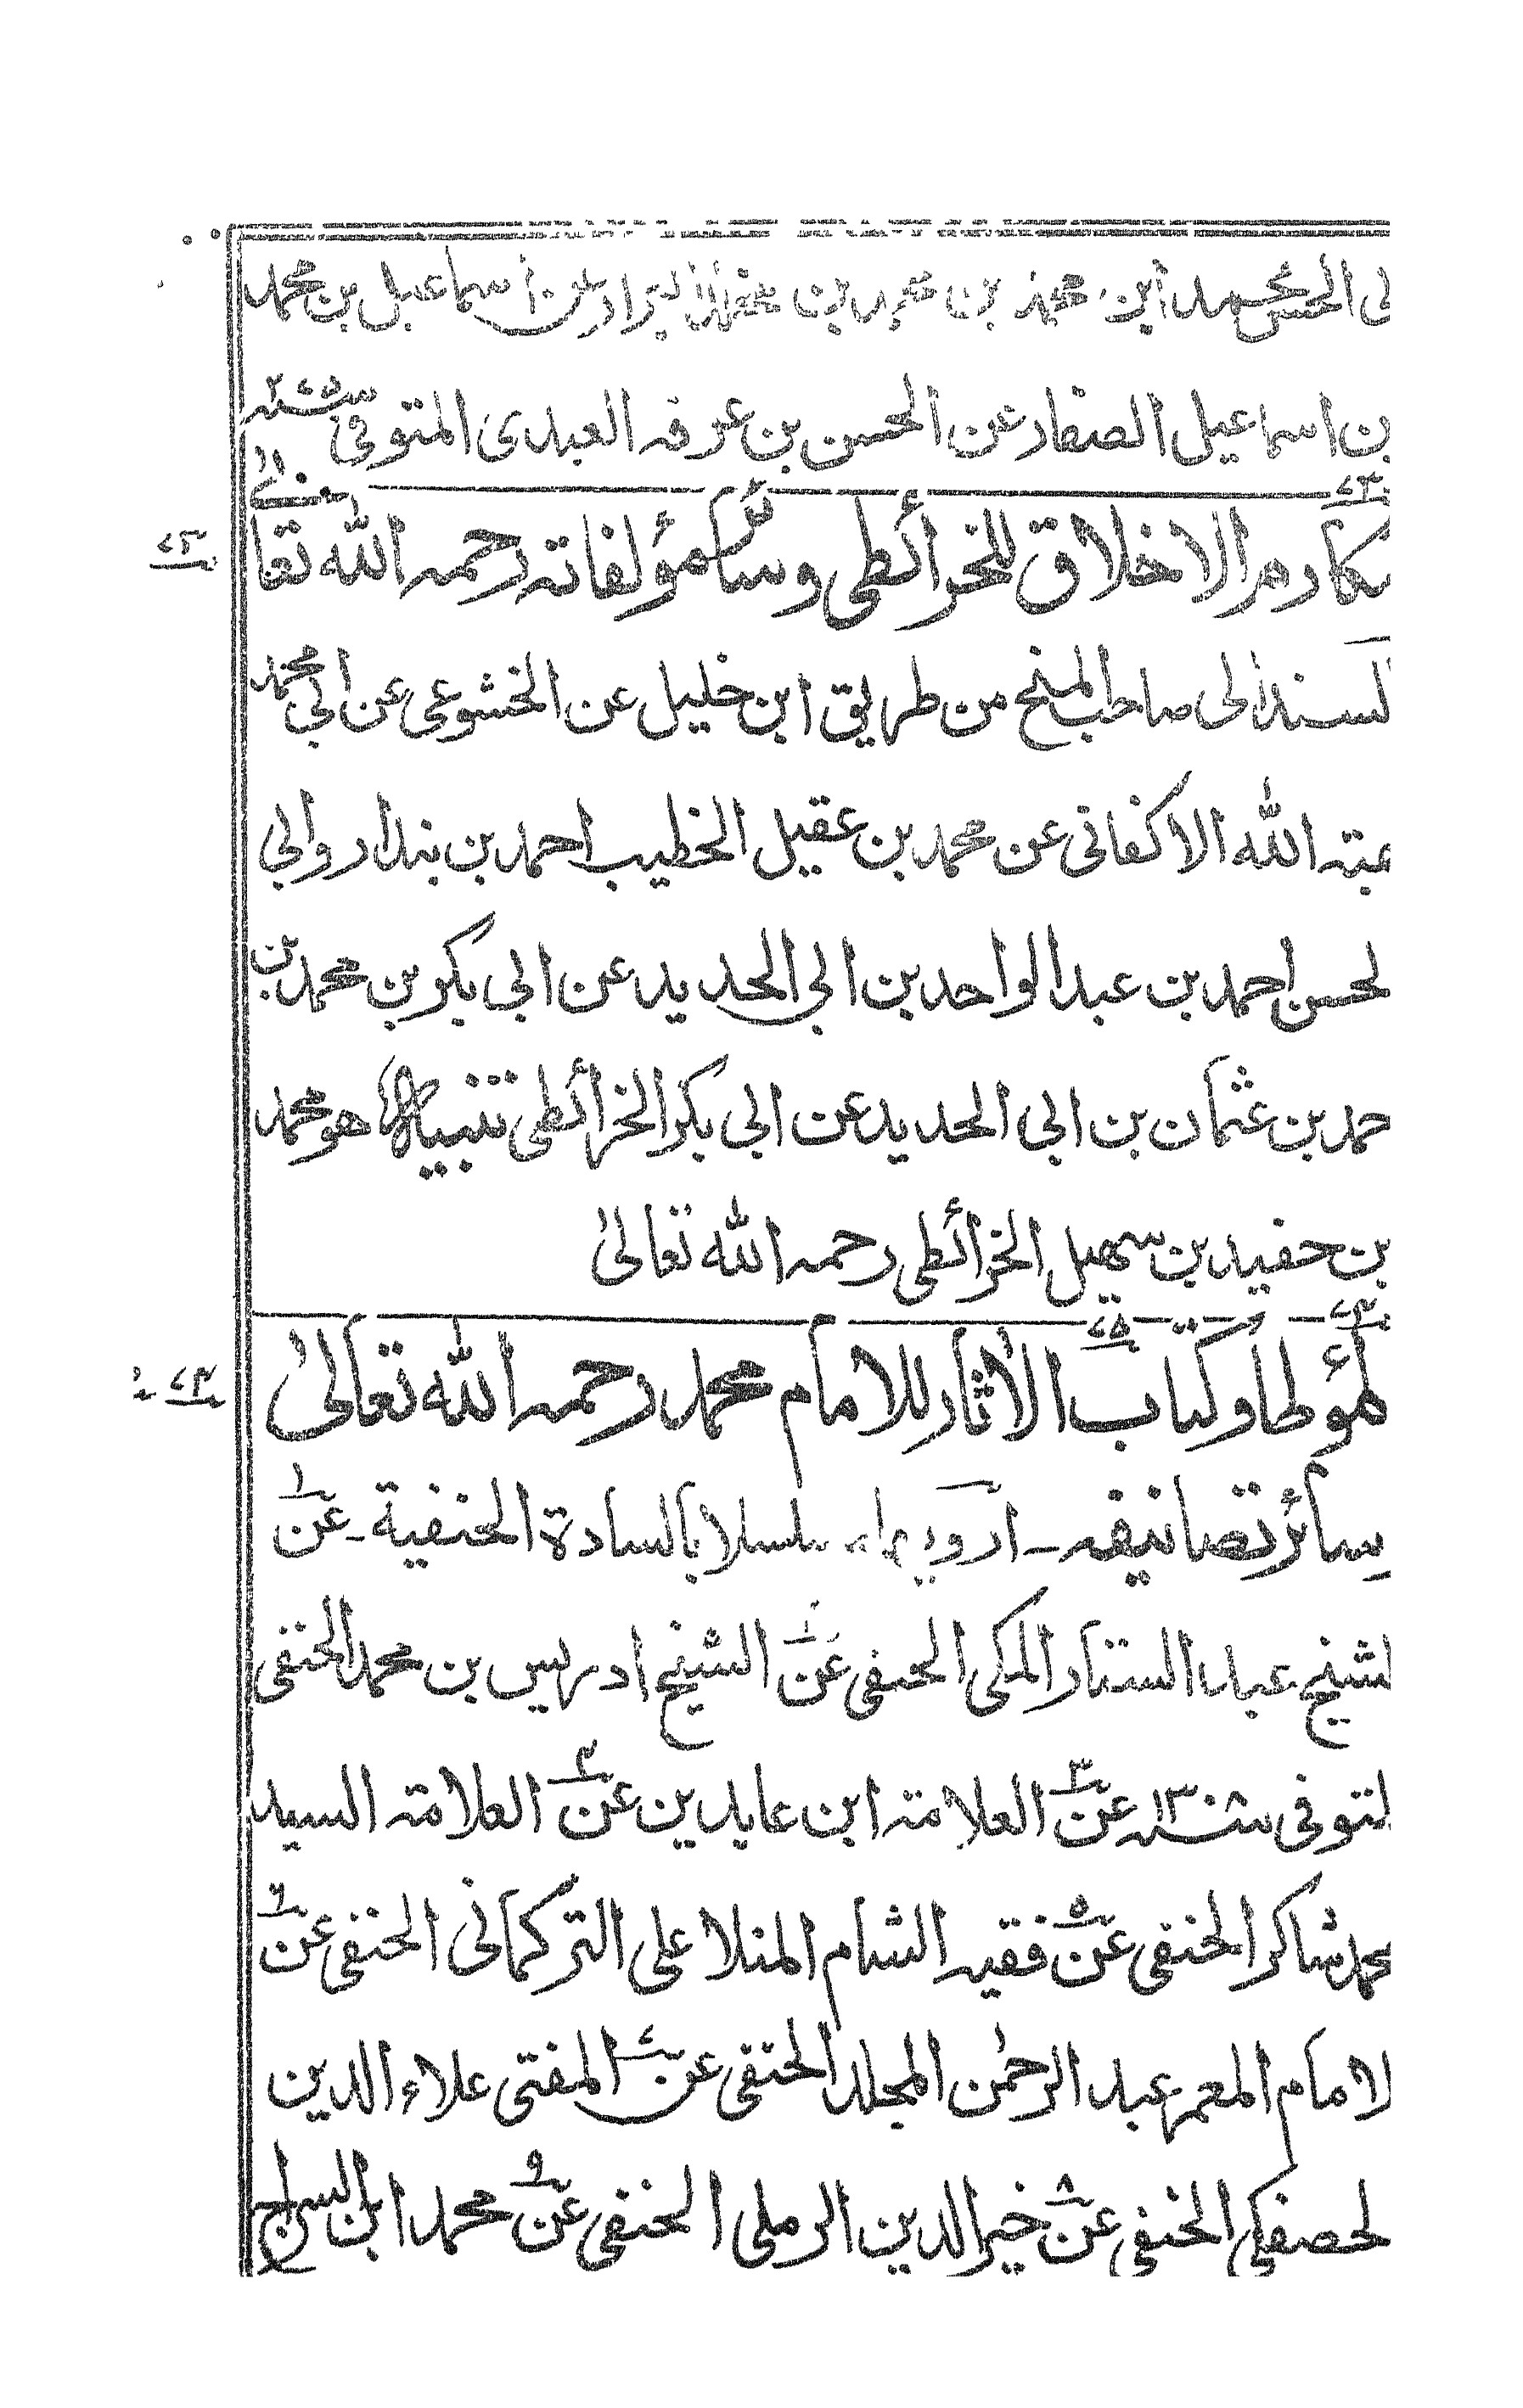 بى الحسن محمد ابن محمد بن محمد بن البزاد عن اسماعيل بن محمد
بن اسماعيل الصفار عن الحسن بن عرفه العبدى المتوفى سنه ٢٧٥
٢٣
مكارم الاخلاق للخرائطى وسائر مؤلفاته رحمه الله تعالىٰ
السند الى صاحب المنح من طريق ابن خليل عن الخشوعى عن ابى محمد
هبته الله الاكفانى عن محمد بن عقيل الخطيب احمد بن بندار وابى
لحسن احمد بن عبد الواحد بن ابى الحديد عن ابى بكر بن محمد بن
حمد بن عثمان بن ابى الحديد عن ابى بكر الخرائطى تنبيه هو محمد
بن حفيد بن سهيل الخرائطى رحمه الله تعالىٰ
٢٤ ٢٥
لمؤطا وكتاب الاٰثار للامام محمد رحمه الله تعالىٰ
وسائر تصانيفه ـ اروى مسلسلا بالسادة الحنفية ـ عن ١
لشيخ عبد الستار المكى الحنفى عن ٢ الشيخ ادريس بن محمد الحنفى
لمتوفى سنه ١٣٠٨ عن ٣ العلامته ابن عابدين عن ٤ العلامته السيد
محمد شاكر الحنفى عن ٥ فقيه الشام المنلا على التركمانى الحنفى عن ٦
لامام المعمر عبد الرحمٰن المجلد الحنفى عن ٧ المفتى علاء الدين
لحصفكى الحنفى عن ٨ خير الدين الرملى الحنفى عن ٩ محمد ابن السراج